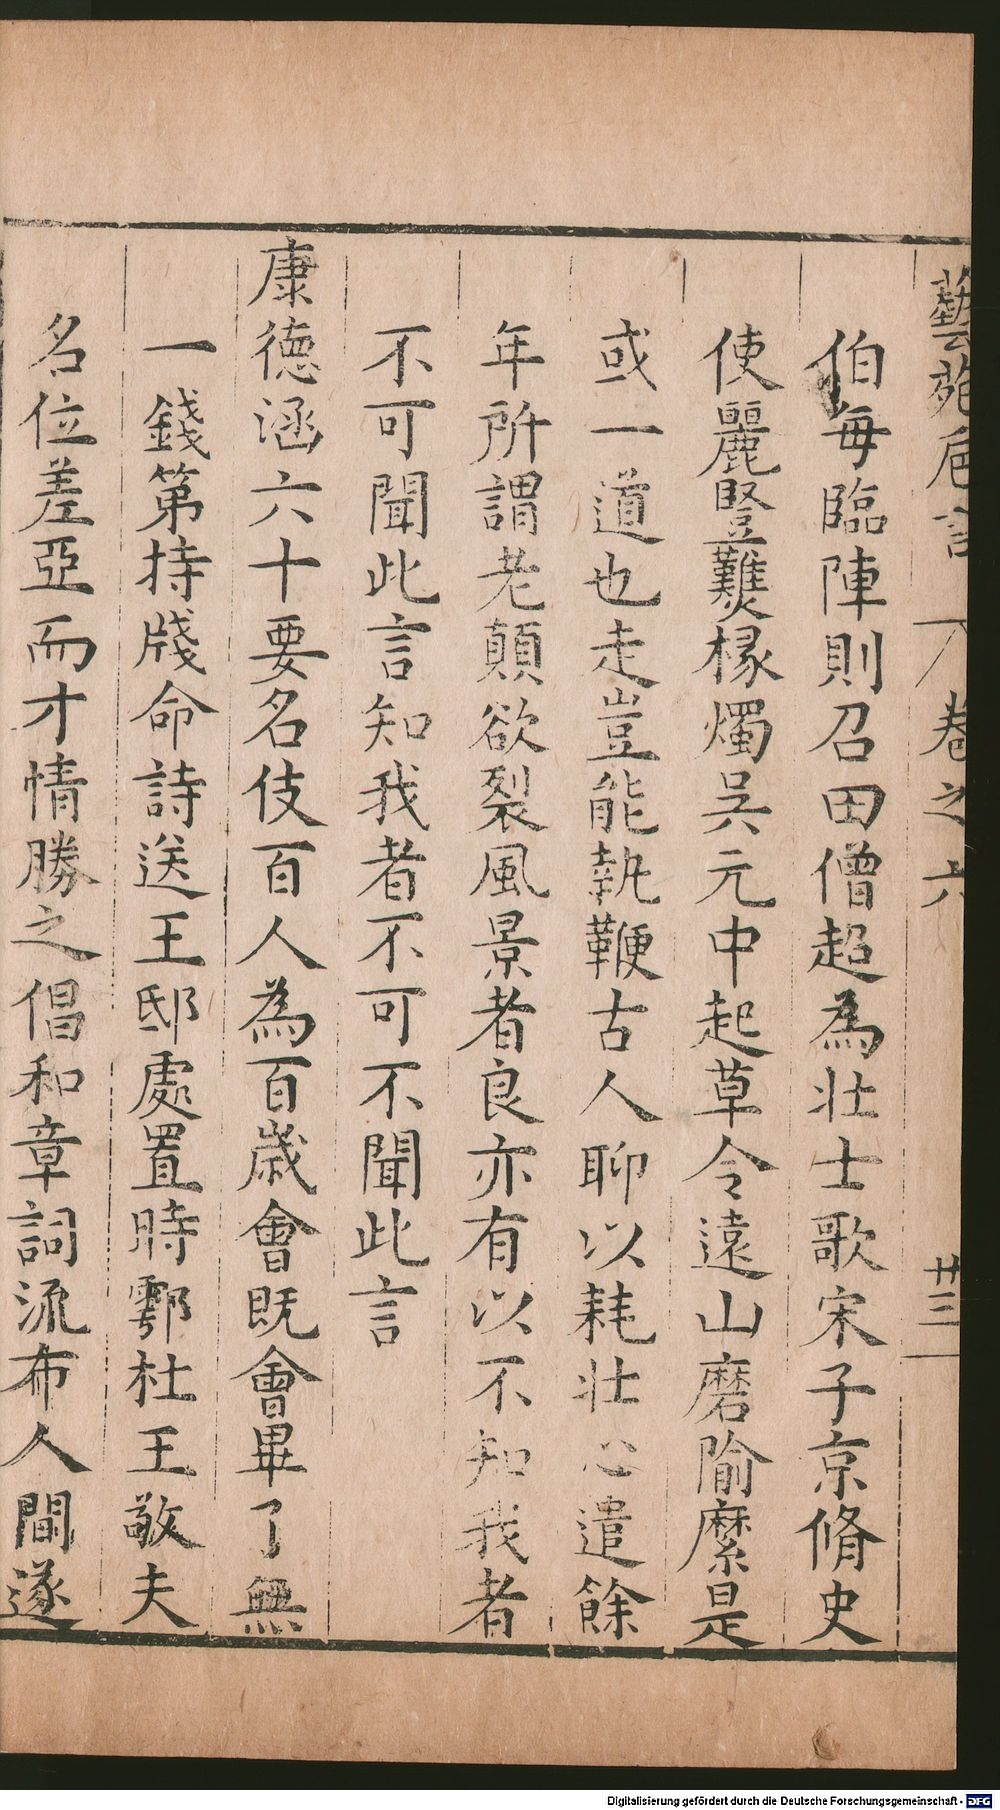 藝苑卮言 卷之六 廿三
伯每臨陣則召田僧超為壯士歌宋子京脩史
使麗豎爇椽燭吳元中起草令遠山磨隃麋是
或一道也走豈能執鞭古人聊以耗壯心遣餘
年所謂老顛欲裂風景者良亦有以不知我者
不可聞此言知我者不可不聞此言
康德涵六十要名伎百人為百歲會既會畢了無
一錢第持牋命詩送王邸處置時鄠杜王敬夫
名位差亞而才情勝之倡和章詞流布人間遂
Digitalisierung gefördert durch die Deutsche Forschungsgemeinschaft - DFG